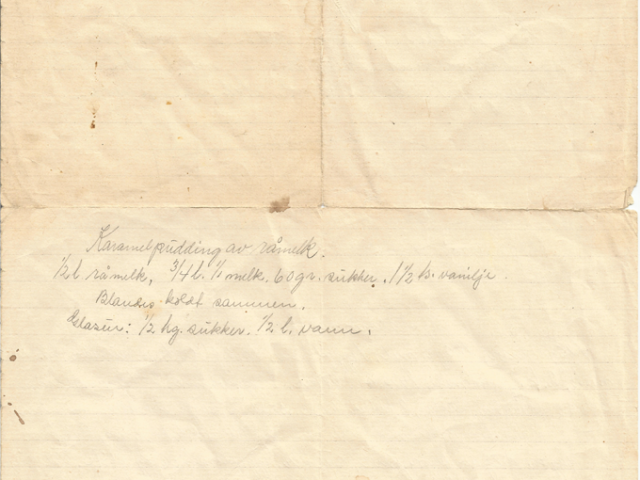 Karamelpudding av råmelk.
1/2 l. råmelk, 3/4 l. 1/1 melk. 60 gr. sukker. 1 1/2 ts. vanilje.
Blandes koldt sammen.
Glasur: 1/2 hg. sukker. 1/2 l. vann.